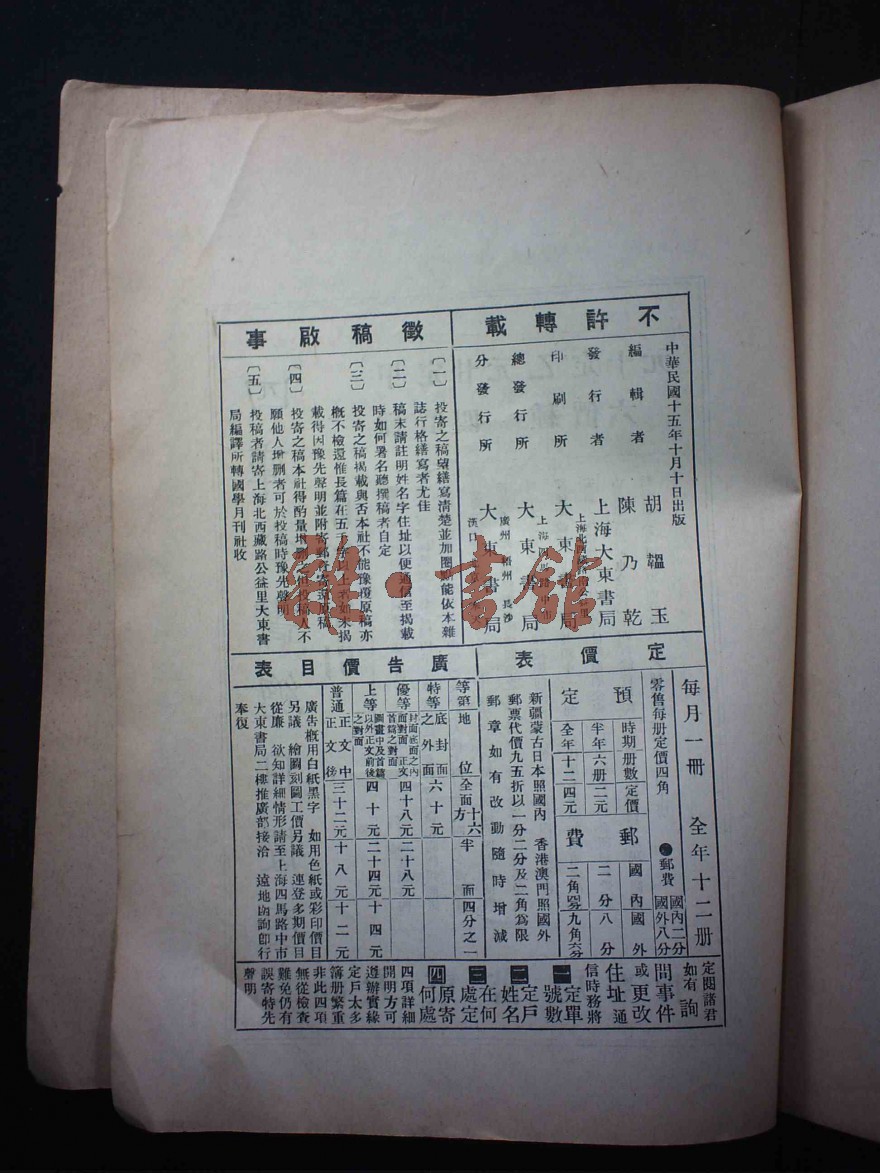 不許轉載
中華民國十五年十月十日出版
編輯者 胡韞玉 陳乃乾
發行者 上海大東書局
印刷所 大東書局
總發行所 大東書局
分發行所 廣州 梧州 長沙 漢口 大東書局
徵稿啟事
〔一〕投寄之稿望繕寫清楚並加圈點能依本雜
誌行格繕寫者尤佳
〔二〕稿末請註明姓名字住址以便通信至揭載
時如何署名聽撰稿者自定
〔三〕投寄之稿揭載與否本社不能豫覆原稿亦
概不檢還惟長篇在五千字以上者如未揭
載得因豫先聲明並附寄郵寄還原稿
〔四〕投寄之稿本社得酌量增刪之但投稿人不
願他人增刪者可於投稿時豫先聲明
〔五〕投稿者請寄上海北西藏路公益里大東書
局編譯所轉國學月刊社收
定價表
每月一冊 全年十二冊
零售每册定價四角 ●郵費 國內二分 國外八分
預定
時期 册數 定價
半年 六册 二元
全年 十二 四元
郵費
國內 國外
二分 八分
二角四分 九角六分
新疆蒙古日本照國內 香港澳門照國外
郵票代價九五折以一分二分及二角為限
郵章如有改動隨時增減
廣告價目表
等第 地位 全面 十六方 半面 四分之一
特等 底封面之外面 六十元
優等 封面底面之內面對面 正文首篇之對面 四十八元 二十八元
上等 圖畫中及首篇以外正文前後之對面 四十元 二十四元 十四元
普通 正文中正文後 三十二元 十八元 十二元
廣告概用白紙黑字 如用色紙或彩印價目
另議 繪圖刻圖工價另議 連登多期價目
從廉 欲知詳細情形請至上海四馬路中市
大東書局二樓推廣部接洽 遠地函詢卽行
奉復
定閱諸君
如有詢
問事件
或更改
住址通
信時務將
一定單號數
二定戶姓名
三在何處定
四原寄何處
四項詳細
開明方可
遵辦實緣
定戶太多
簿册繁重
非此四項
無從檢查
難免仍有
誤寄特先
聲明
雜·書館